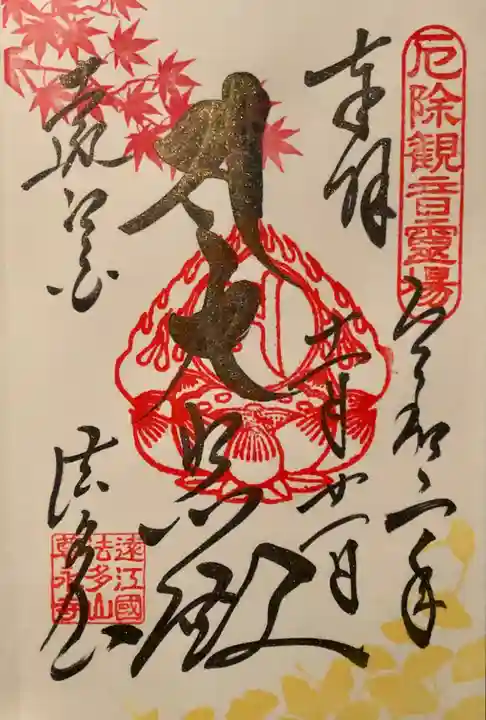 厄除観音靈場
奉拝
令和二年
十一月廿一日
大悲殿
法多山
遠江國
法多山
尊永寺